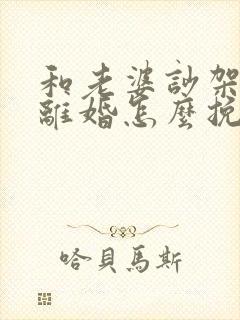 和老婆訬架
離婚怎麼挽
哈貝馬斯